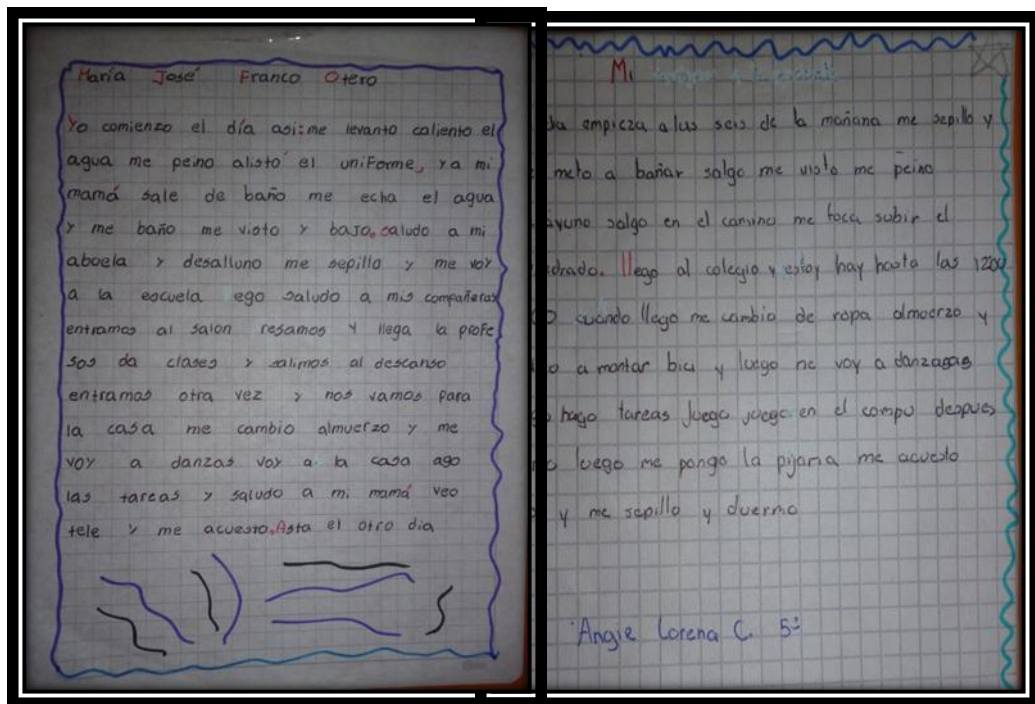 María José Franco Otero
Yo comienzo el día asi: me levanto caliento el
agua me peino alisto el uniforme, ya mi
mamá sale de baño me echa el agua
y me baño me visto y bajo, saludo a mi
abuela y desalluno me sepillo y me voy
a la escuela ego saludo a mis compañeras
entramos al salon resamos y llega la profe
sos da clases y salimos al descanso
entramos otra vez y nos vamos para
la casa me cambio almuerzo y me
voy a danzas voy a la casa ago
las tareas y saludo a mi mamá veo
tele y me acuesto, Asta el otro dia
Mi
empieza a las seis de la mañana me sepillo y
meto a bañar salgo me visto me peino
salgo en el camino me toca subir el
llego al colegio y estoy hay hasta las 1200
cuándo llego me cambio de ropa almuerzo y
a montar bici y luego me voy a danzas
hago tareas juego juego en el compu despues
luego me pongo la pijama me acuesto
y me sepillo y duermo
Angie Lorena C. 5º